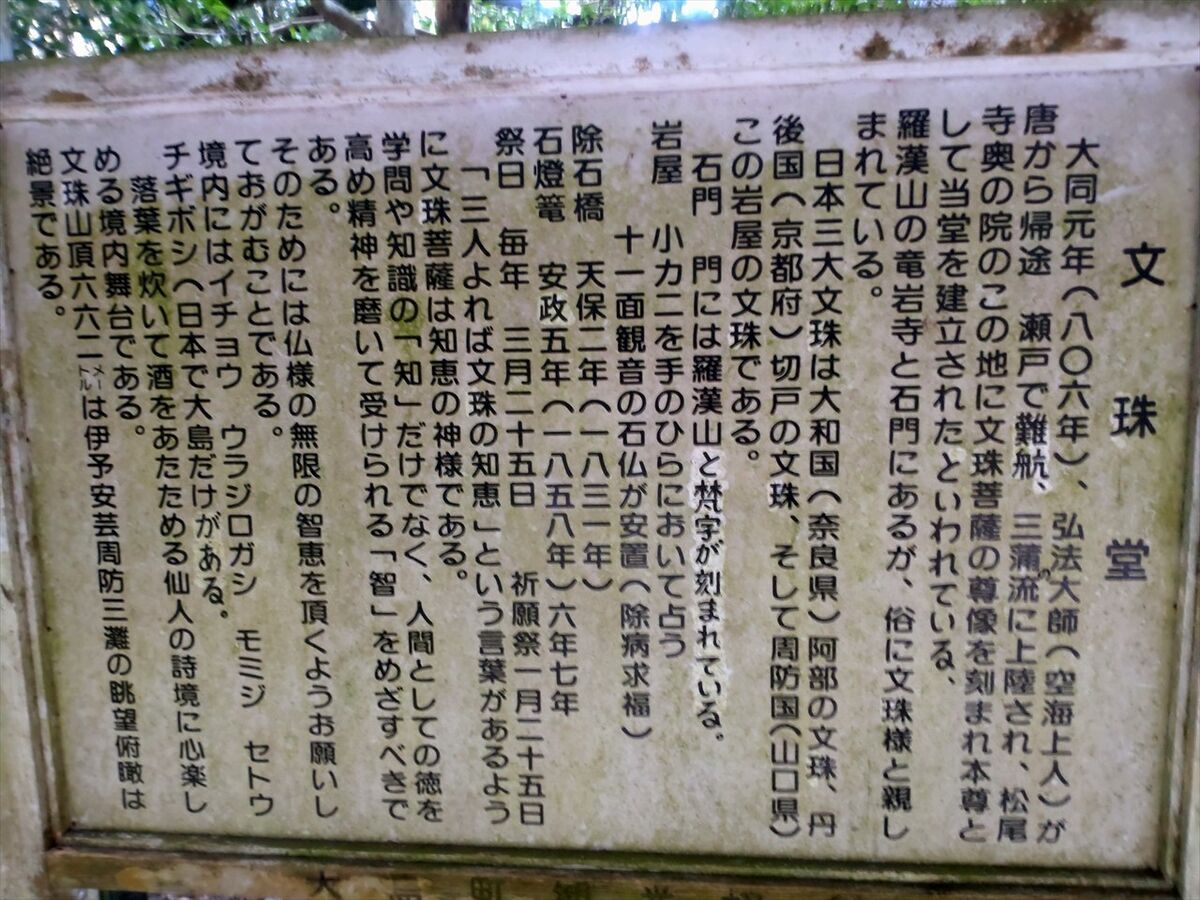 文珠堂
大同元年（八〇六年）、弘法大師（空海上人）が
唐から帰途　瀬戸で難航、三蒲流に上陸され、松尾
寺奥の院のこの地に文珠菩薩の尊像を刻まれ本尊と
して当堂を建立されたといわれている、
羅漢山の竜岩寺と石門にあるが、俗に文珠様と親し
まれている。
日本三大文珠は大和国（奈良県）阿部の文珠、丹
後国（京都府）切戸の文珠、そして周防国（山口県）
この岩屋の文珠である。
石門　門には羅漢山と梵字が刻まれている。
岩屋　小カニを手のひらにおいて占う
十一面観音の石仏が安置（除病求福）
除石橋　天保二年（一八三一年）
石燈篭　安政五年（一八五八年）六年七年
祭日　毎年　三月二十五日　祈願祭一月二十五日
「三人よれば文珠の知恵」という言葉があるよう
に文珠菩薩は知恵の神様である。
学問や知識の「知」だけでなく、人間としての徳を
高め精神を磨いて受けられる「智」をめざすべきで
ある。
そのためには仏様の無限の智恵を頂くようお願いし
ておがむことである。
境内にはイチョウ　ウラジロガシ　モミジ　セトウ
チギボシ（日本で大島だけがある。
落葉を炊いて酒をあたためる仙人の詩境に心楽し
める境内舞台である。
文珠山頂六六二㍍は伊予安芸周防三灘の眺望俯瞰は
絶景である。